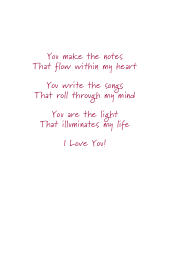 You make the notes
That flow within my heart
You write the songs
That roll through my mind
You are the light
That illuminates my life
I Love You!